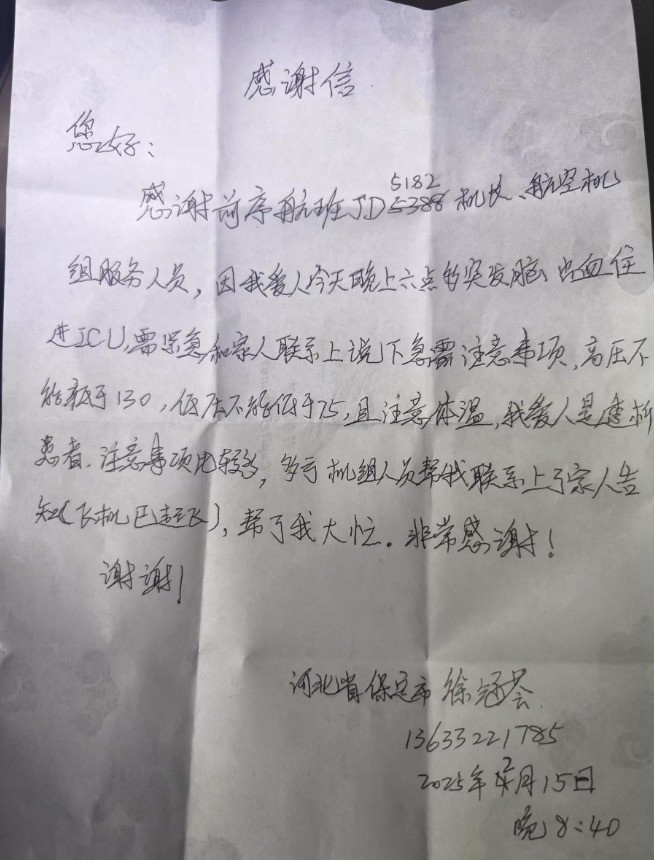 感谢信
您好：
感谢前序航班JD5182机长、航空机
组服务人员，因我爱人今天晚上六点多突发脑出血住
进ICU，需紧急和家人联系上说下急需注意事项，高压不
能高于130，低压不能低于75，且注意体温，我爱人是透析
患者，注意事项比较多，多亏机组人员帮我联系上了家人告
知（飞机已起飞），帮了我大忙。非常感谢！
谢谢！
河北省保定市 徐冠荟
13633221785
2025年2月15日
晚8:40